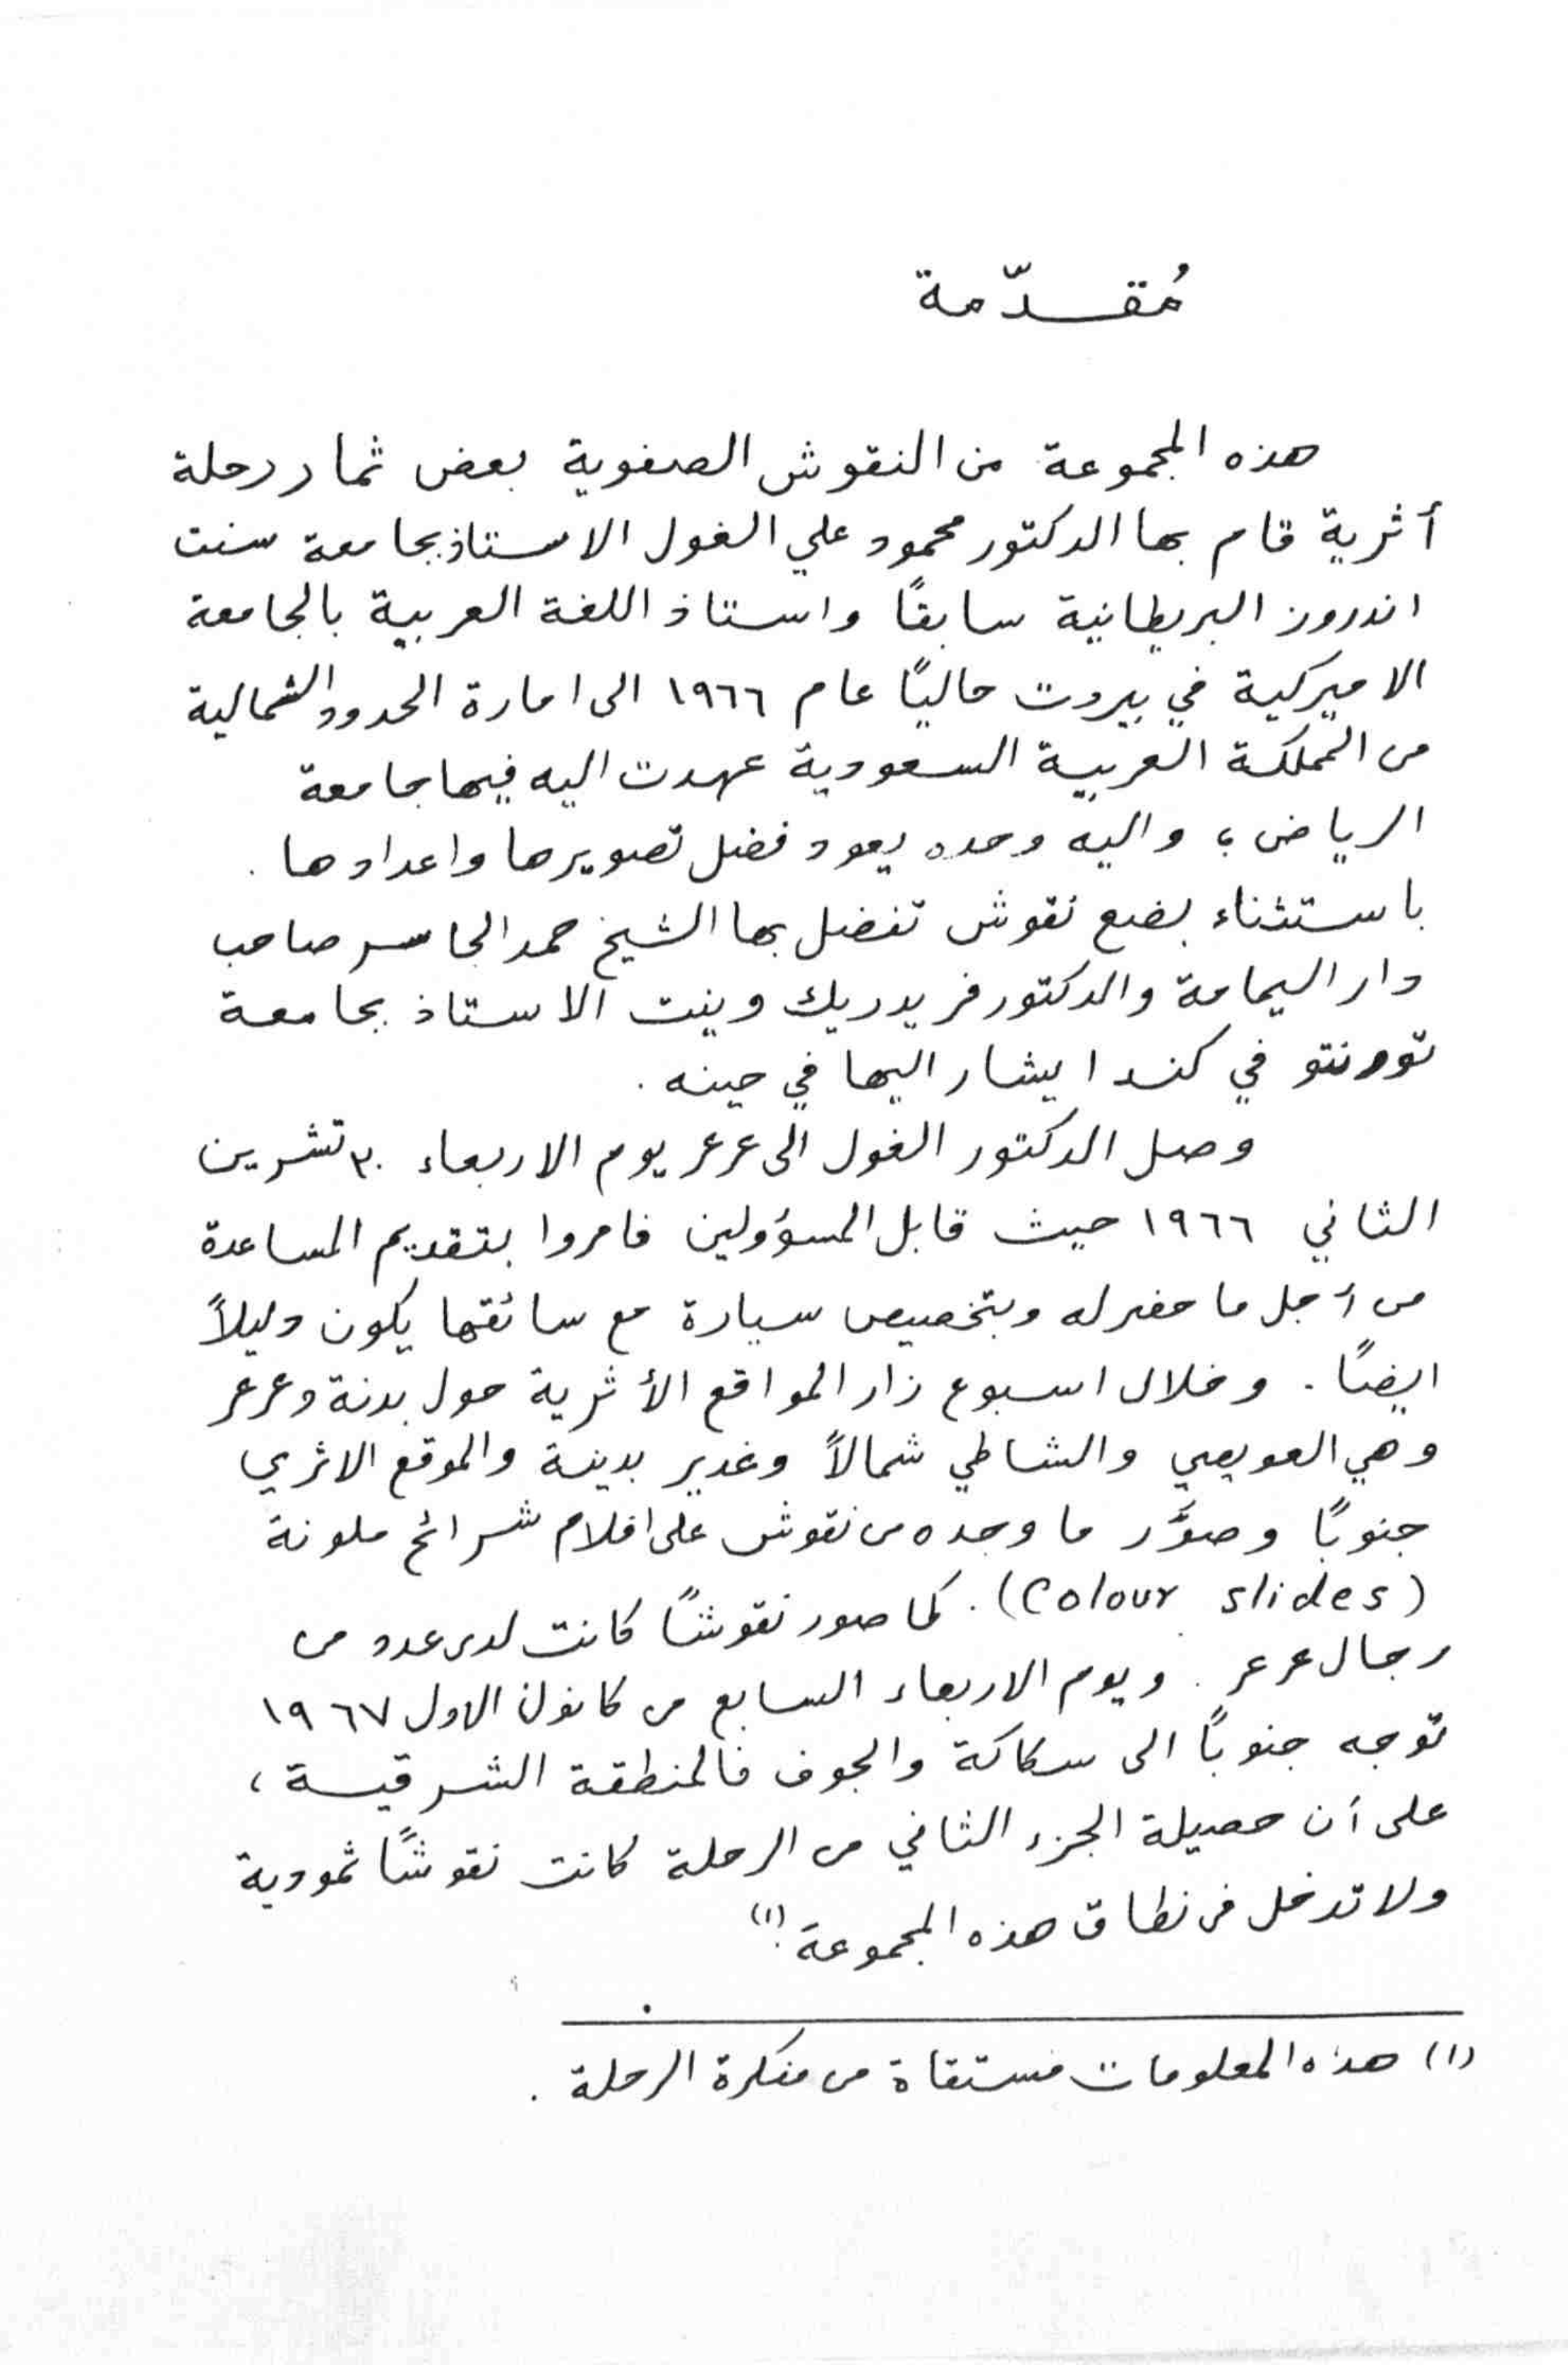 مُقدّمة
هذه المجموعة من النقوش الصفوية بعض ثمار رحلة
أثرية قام بها الدكتور محمود علي الغول الاستاذ بجامعة سنت
اندروز البريطانية سابقًا واستاذ اللغة العربية بالجامعة
الاميركية في بيروت حاليًا عام ١٩٦٦ الى امارة الحدود الشمالية
من المملكة العربية السعودية عهدت اليه فيها جامعة
الرياض ؛ واليه وحده يعود فضل تصويرها واعدادها .
باستثناء بضع نقوش تفضل بها الشيخ حمد الجاسر صاحب
دار اليمامة والدكتور فريدريك وينت الاستاذ بجامعة
تورنتو في كندا يشار اليها في حينه .
وصل الدكتور الغول الى عرعر يوم الاربعاء ٣٠ تشرين
الثاني ١٩٦٦ حيث قابل المسؤولين فامروا بتقديم المساعدة
من أجل ما حضر له وبتخصيص سيارة مع سائقها يكون دليلاً
ايضًا . وخلال اسبوع زار المواقع الأثرية حول بدنة وعرعر
وهي العويصي والشاظي شمالاً وغدير بدينة والموقع الاثري
جنوبًا وصوَّر ما وجده من نقوش على افلام شرائح ملونة
(Colour slides) . كما صور نقوشًا كانت لدى عدد من
رجال عرعر . ويوم الاربعاء السابع من كانون الاول ١٩٦٧
توجه جنوبًا الى سكاكة والجوف فالمنطقة الشرقية ،
على أن حصيلة الجزء الثاني من الرحلة كانت نقوشًا ثمودية
ولا تدخل في نطاق هذه المجموعة .(١)
(١) هذه المعلومات مستقاة من مذكرة الرحلة .